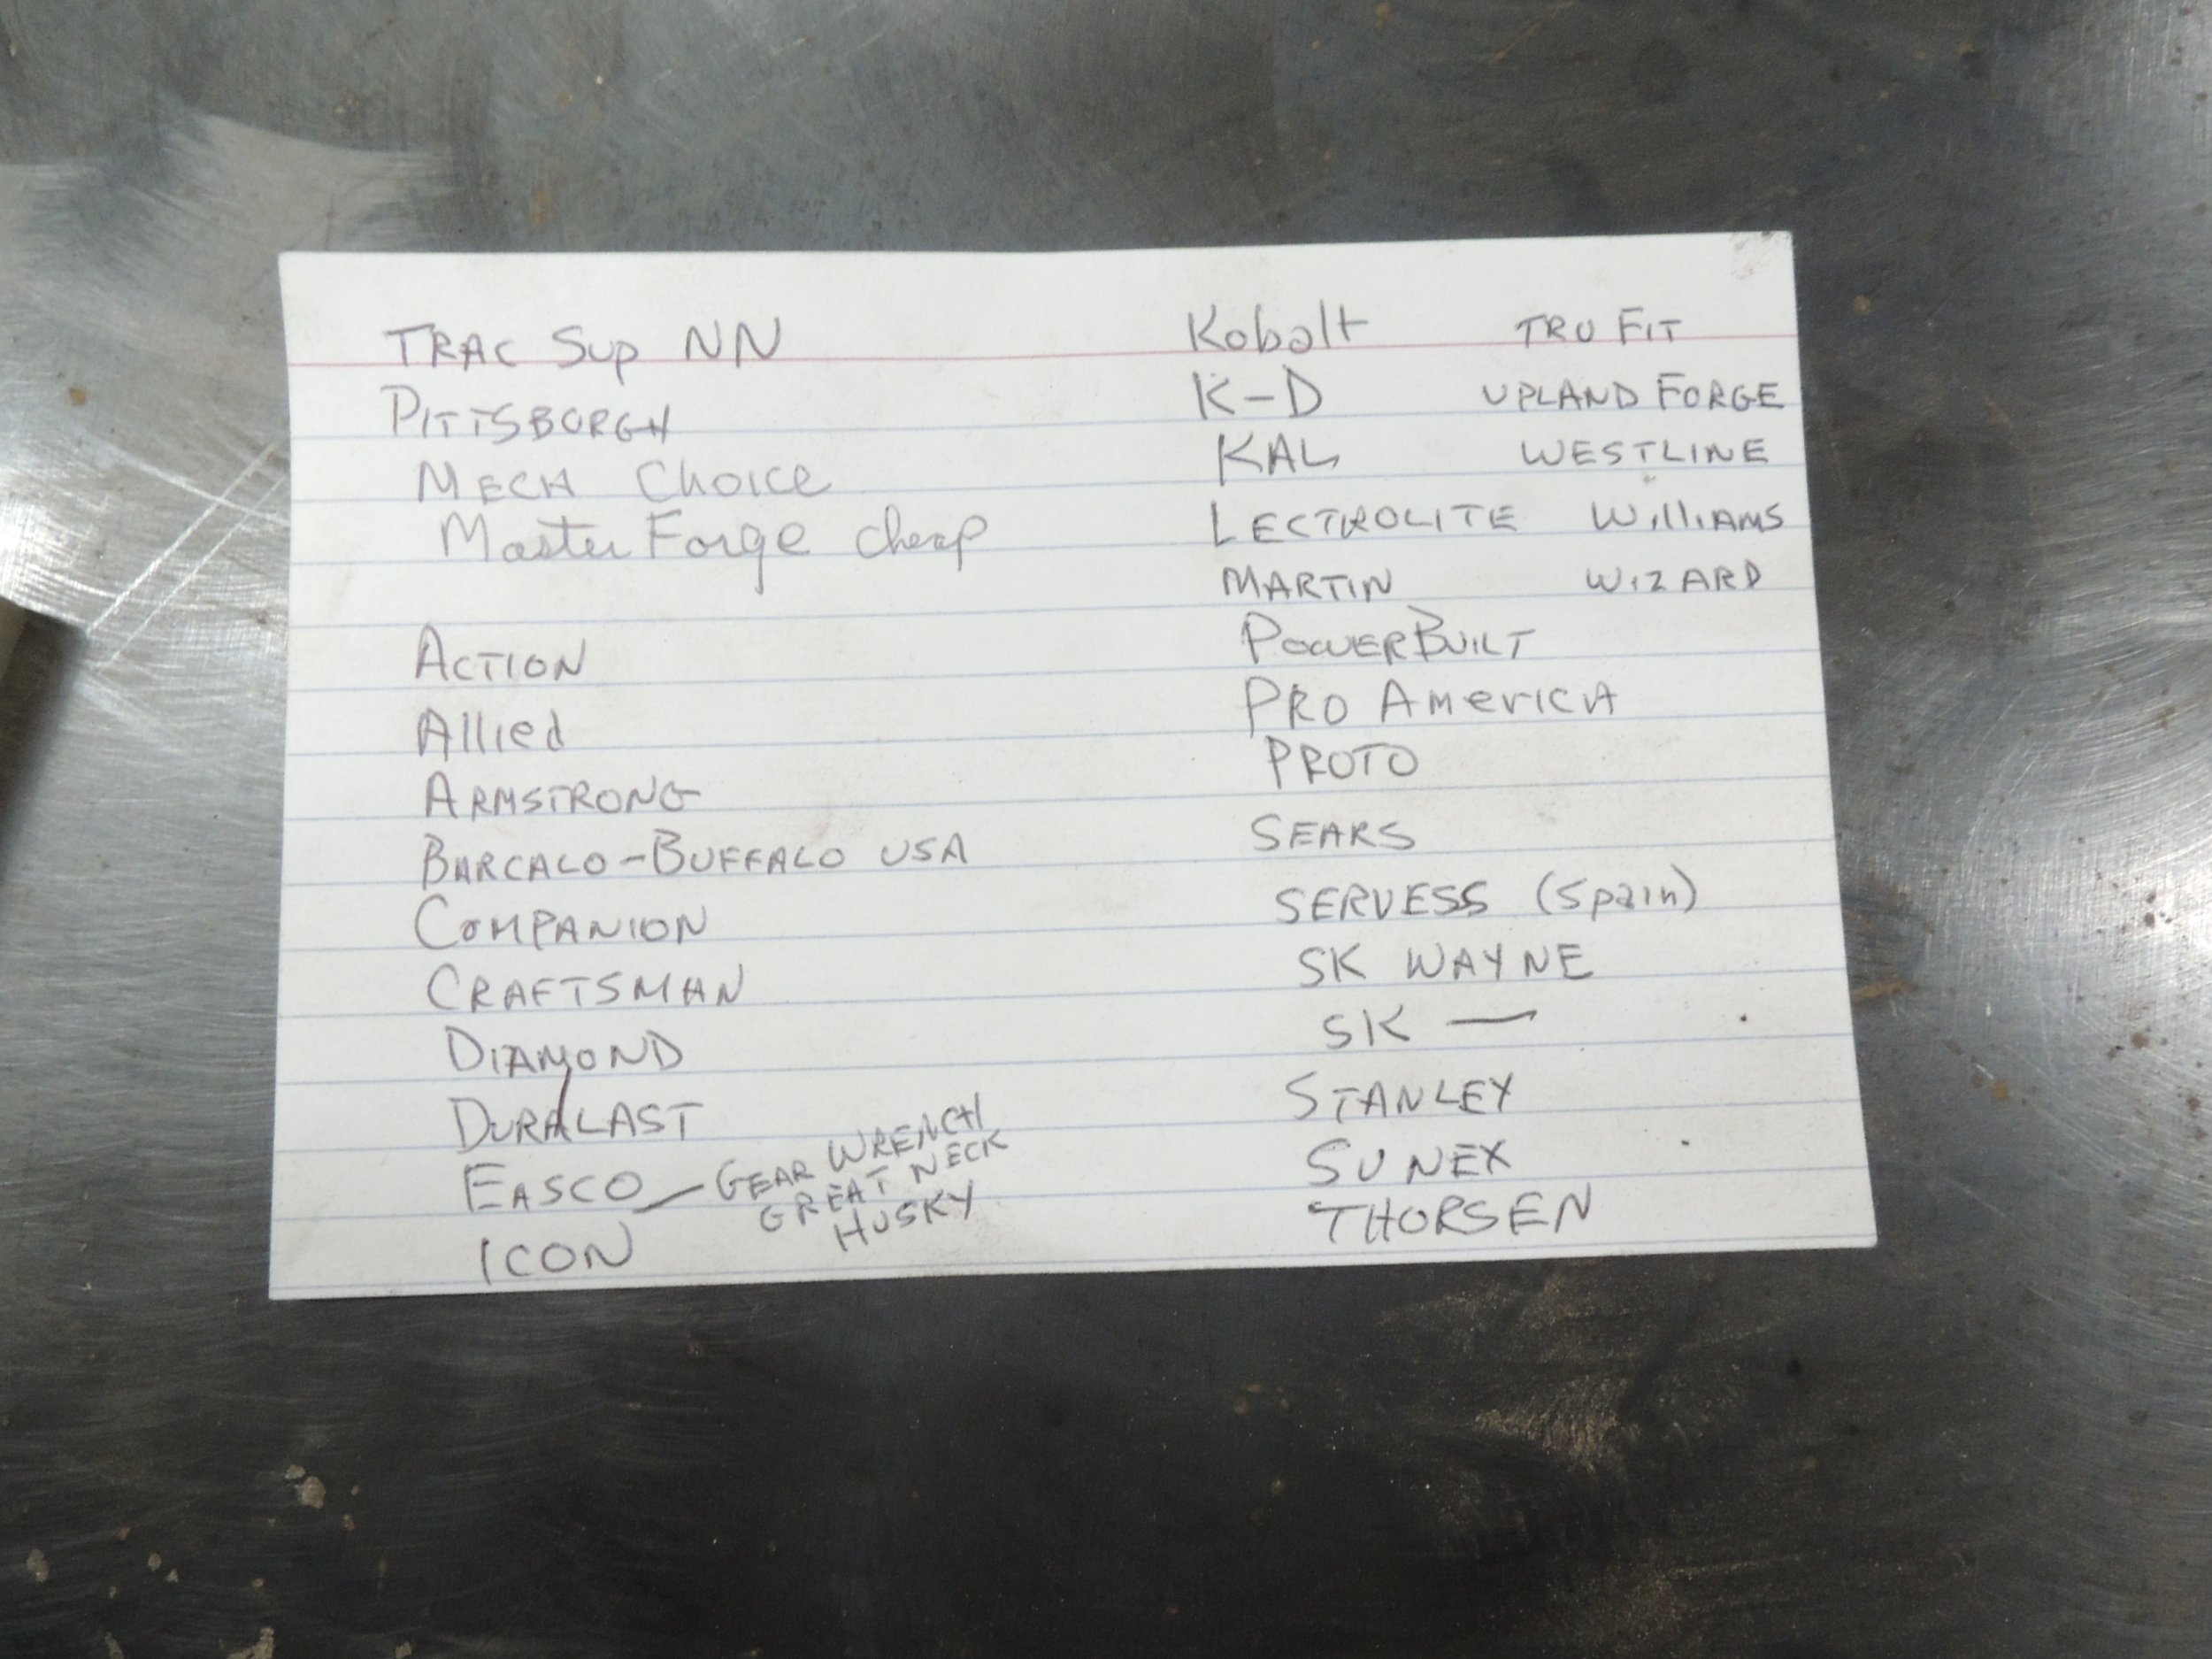 TRAC SUP NN
PITTSBURGH
MECH Choice
Master Forge cheap
ACTION
Allied
ARMSTRONG
BARCALO-BUFFALO USA
COMPANION
CRAFTSMAN
DIAMOND
DURALAST
EASCO - GEAR WRENCH
GREAT NECK
HUSKY
ICON
Kobalt
K-D
KAL
LECTROLITE
MARTIN
POWERBUILT
PRO AMERICA
PROTO
SEARS
SERVESS (Spain)
SK WAYNE
SK —
STANLEY
SUNEX
THORSEN
TRU FIT
UPLAND FORGE
WESTLINE
WilliAMS
WIZARD